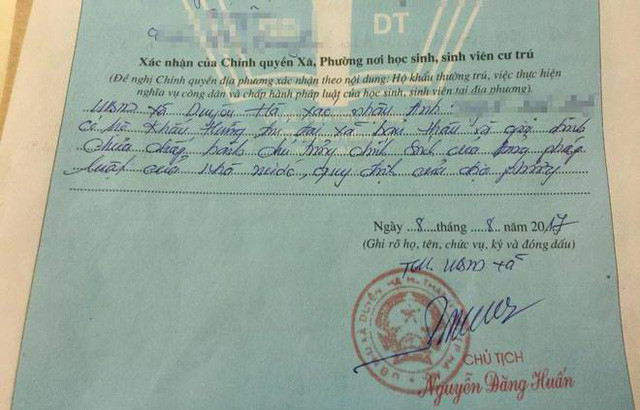 DT
Xác nhận của Chính quyền Xã, Phường nơi học sinh, sinh viên cư trú
(Đề nghị Chính quyền địa phương xác nhận theo nội dung: Hộ khẩu thường trú, việc thực hiện
nghĩa vụ công dân và chấp hành pháp luật của học sinh, sinh viên tại địa phương).
UBND xã Duyên Hà, xác nhận Anh:
có hộ khẩu thường trú tại xã. Bản thân và gia đình
chưa chấp hành chủ trương chính sách của Đảng pháp
luật của nhà nước, quy định của địa phương
Ngày 8 tháng 8 năm 2017
(Ghi rõ họ, tên, chức vụ, ký và đóng dấu)
TM. UBND xã
CHỦ TỊCH
Nguyễn Đăng Huấn